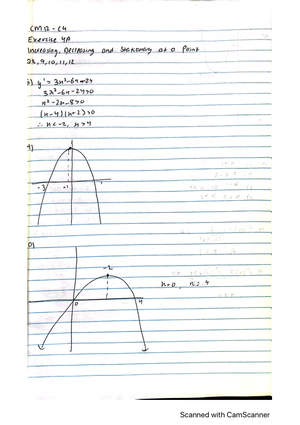 CM12 - C4
Exercise 4A
Increasing, Decreasing and Stationary at a Point
Q8, 9, 10, 11, 12
8) y' = 3x²-6x-24
3x²-6x-24>0
x²-2x-8>0
(x-4)(x+2)>0
∴ x<-2, x>4
9)
-3 -1 1
10)
-2
0 4
x=0, x=4
Scanned with CamScanner